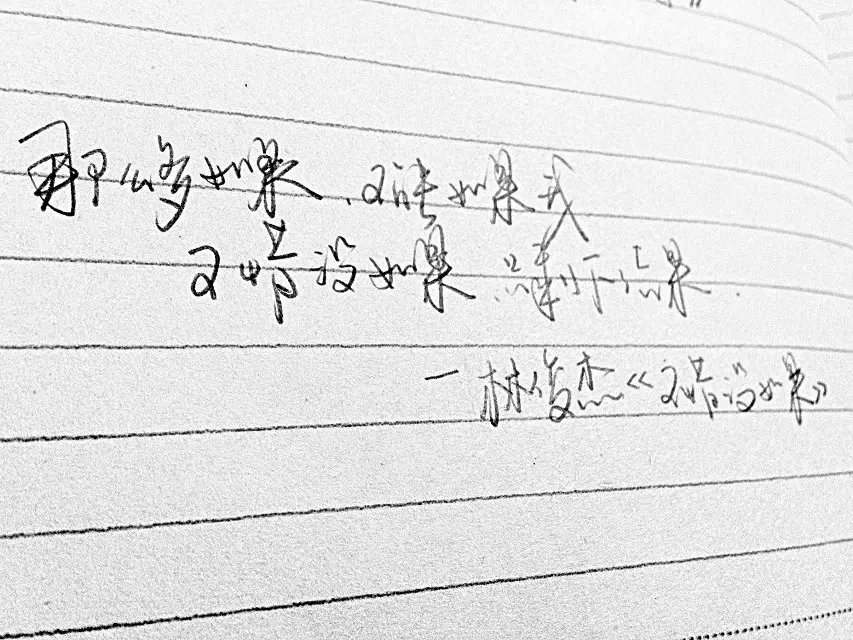 那么多如果,可能如果我
可惜没如果 只剩下结果.
—林俊杰《可惜没如果》